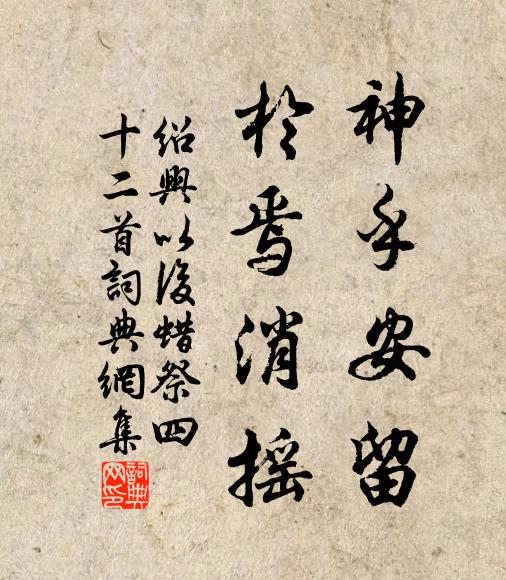 神乎安留
於焉消摇
紹興以後蜡祭四
十二首詞典網集
詞典
网印